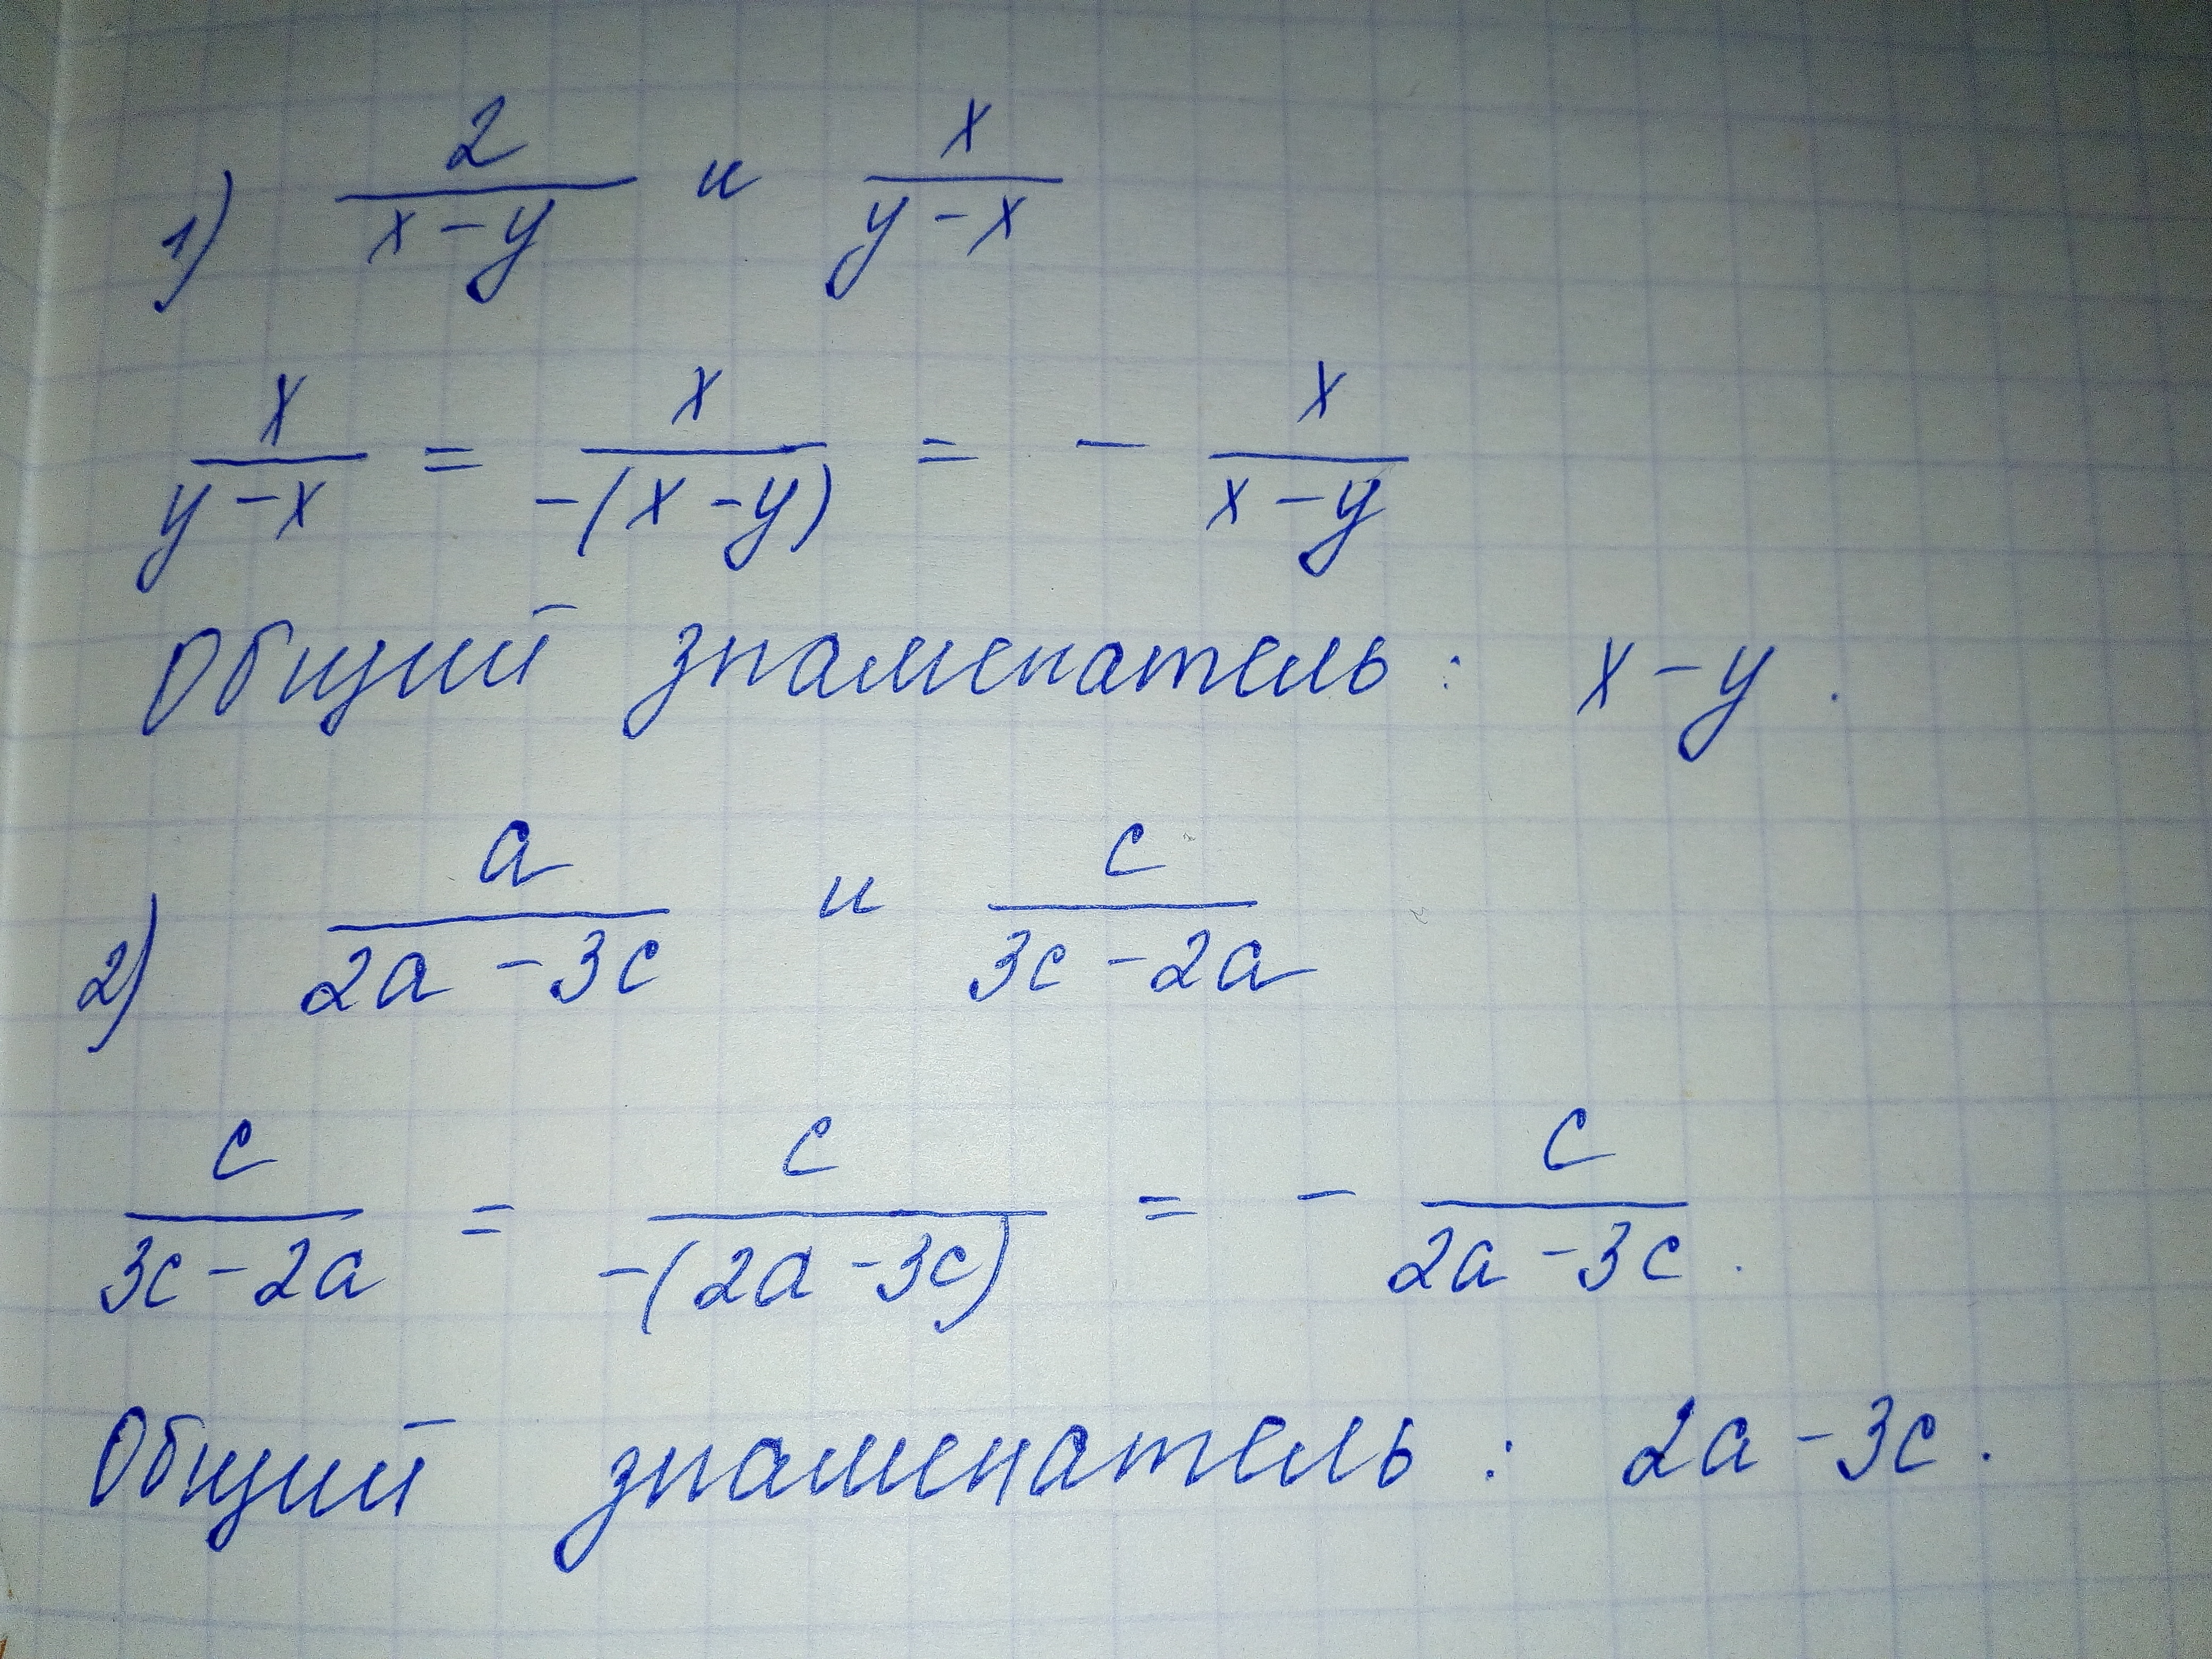 1) 2/(x-y) и x/(y-x)
x/(y-x) = x/(-(x-y)) = - x/(x-y)
Общий знаменатель: x-y.
2) a/(2a-3c) и c/(3c-2a)
c/(3c-2a) = c/(-(2a-3c)) = - c/(2a-3c).
Общий знаменатель: 2a-3c.